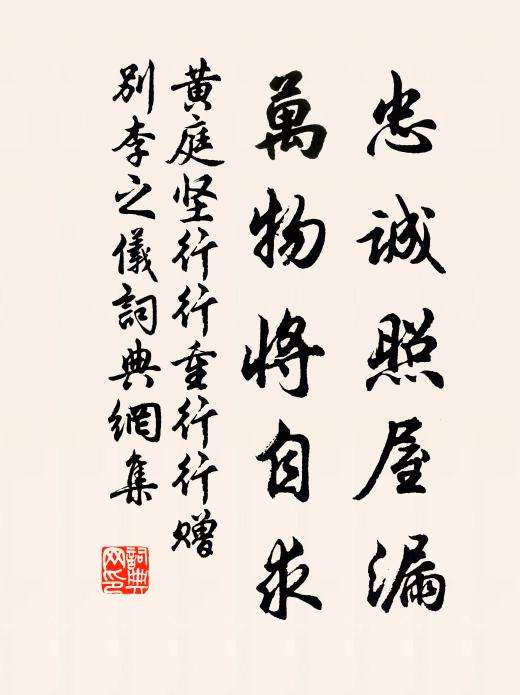 忠誠照屋漏
萬物將自求
黄庭坚行行重行行赠
别李之儀詞典網集
詞典
网印